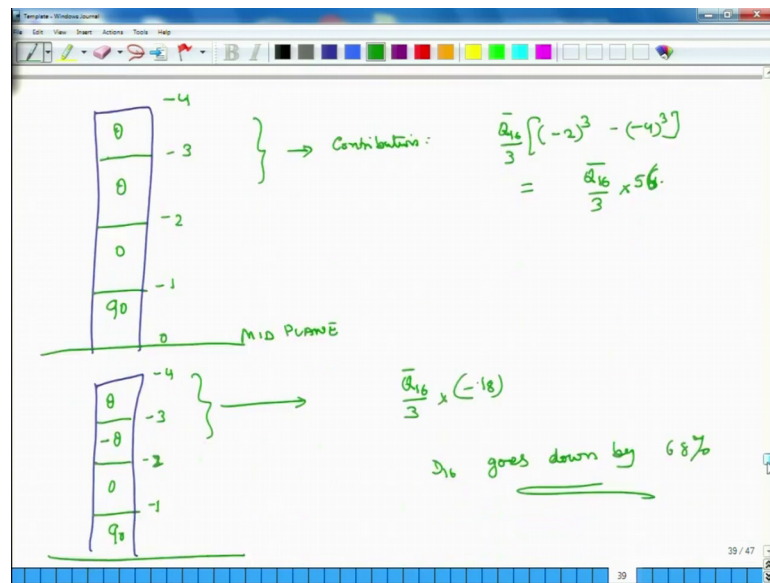 Template - Windows Journal
File Edit View Insert Actions Tools Help
-4
θ
-3
θ
-2
0
-1
90
0 MID PLANE
→ Contribution: Q̄16/3 [(-2)³ - (-4)³]
= Q̄16/3 × 56
-4
θ
-3
-θ
-2
0
-1
90
Q̄16/3 × (-18)
D16 goes down by 68%
39 / 47
39